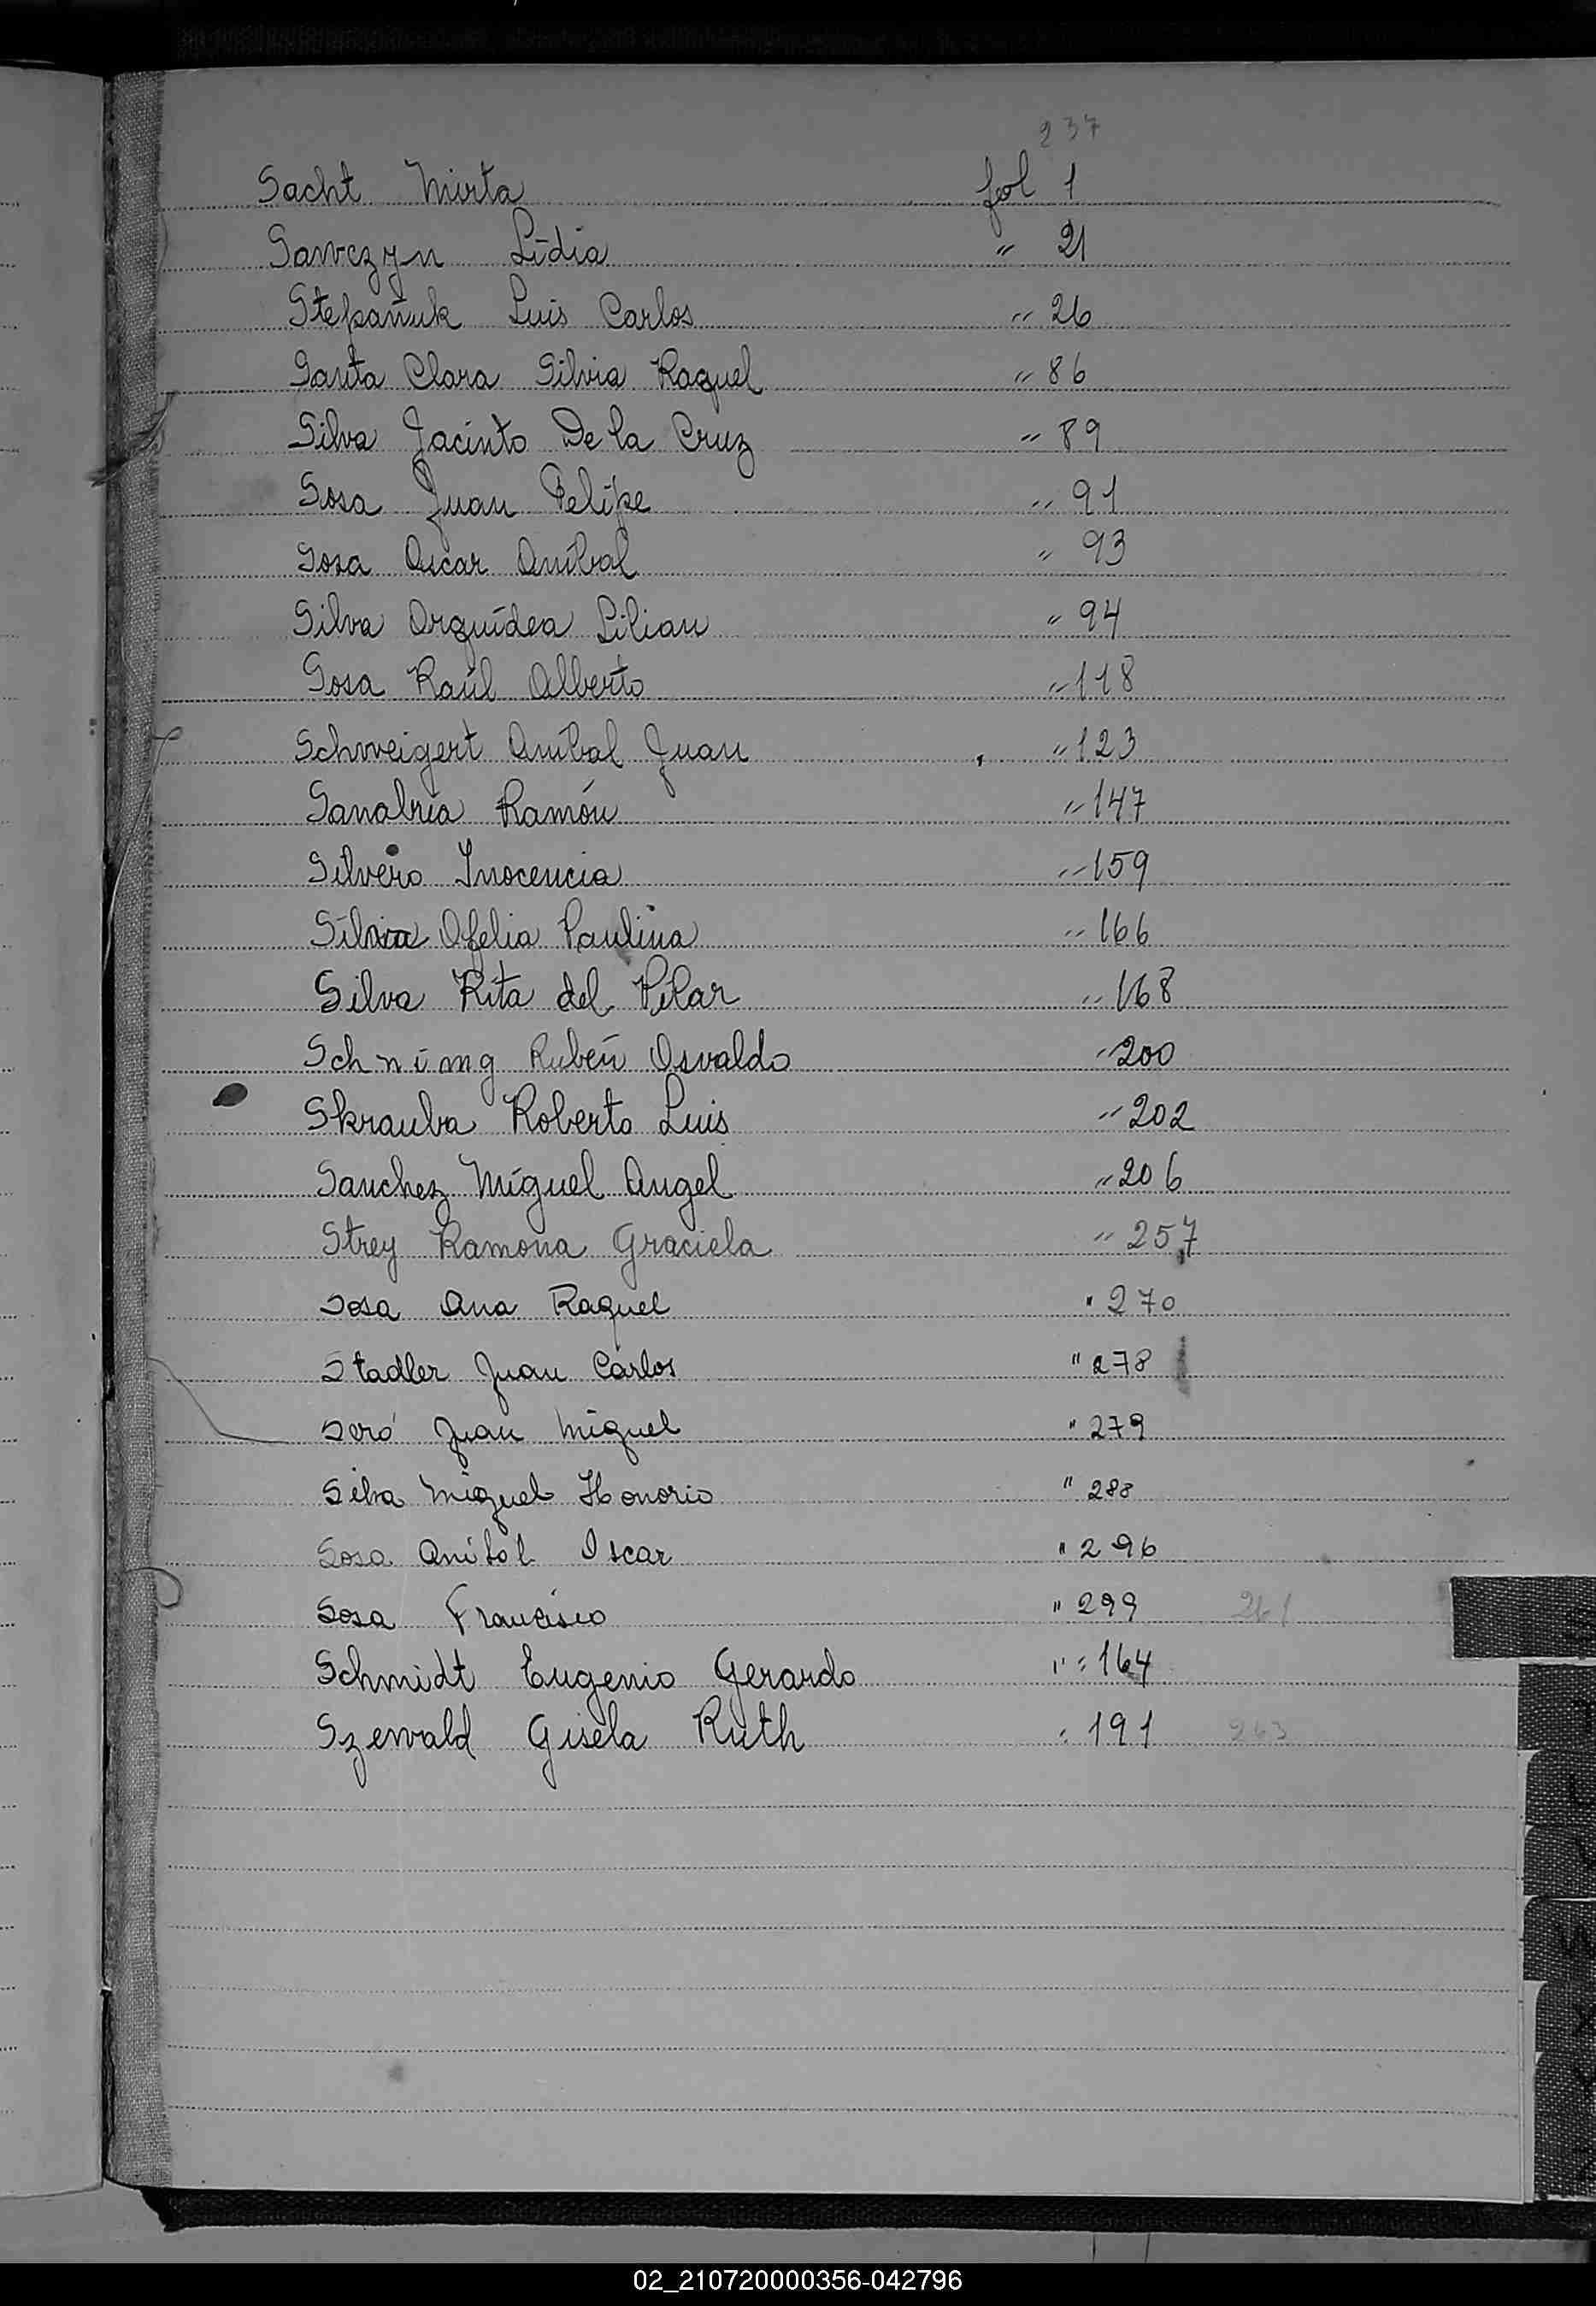 237
Sacht Mirta fol 1
Sawczyn Lidia " 21
Stepañuk Luis Carlos " 26
Santa Clara Silvia Raquel " 86
Silva Jacinto De la Cruz " 89
Sosa Juan Felipe " 91
Sosa Oscar Aníbal " 93
Silva Orquídea Lilian " 94
Sosa Raúl Alberto " 118
Schweigert Aníbal Juan " 123
Sanabria Ramón " 147
Silvero Inocencia " 159
Silvia Ofelia Paulina " 166
Silva Rita del Pilar " 168
Rubén Osvaldo " 200
Skrauba Roberto Luis " 202
Sanchez Miguel Angel " 206
Strey Ramona Graciela " 257
Sosa Ana Raquel " 270
Stadler Juan Carlos " 278
Seró Juan Miguel " 279
Silva Miguel Honorio " 288
Sosa Anibal Oscar " 296
Sosa Francisco " 299 261
Schmidt Eugenio Gerardo " : 164
Szewald Gisela Ruth : 191 263
02_210720000356-042796